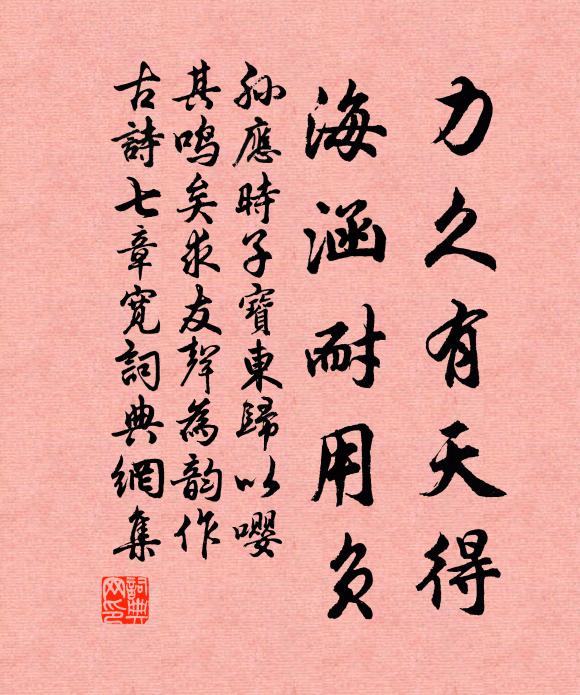 力久有天得
海涵耐用负
孙應時子寶東歸以嚶
其鳴矣求友聲為韵作
古詩七章寬詞典網集
詞典
网印